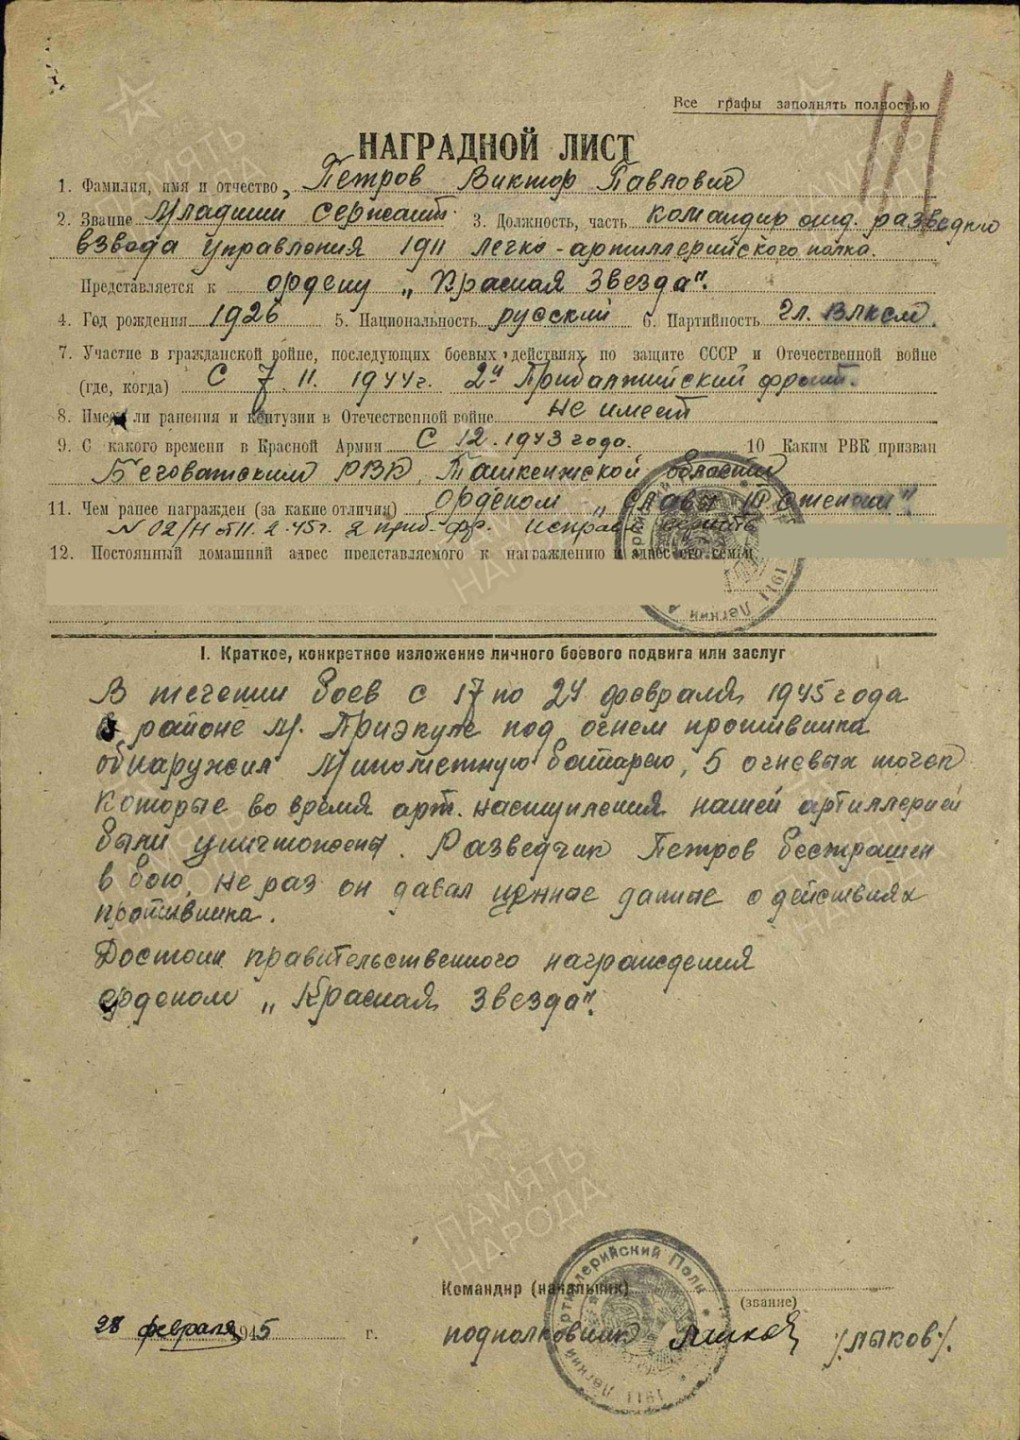 Все графы заполнять полностью
НАГРАДНОЙ ЛИСТ
1. Фамилия, имя и отчество Петров Виктор Павлович
2. Звание Младший сержант. 3. Должность, часть командир отд. разведки
взвода управления 1911 легко-артиллерийского полка.
Представляется к ордену „Красная Звезда".
4. Год рождения 1926 5. Национальность русский 6. Партийность чл. ВЛКСМ.
7. Участие в гражданской войне, последующих боевых действиях по защите СССР и Отечественной войне
(где, когда) С 7.11.1944г. 2й Прибалтийский фронт.
8. Имеет ли ранения и контузии в Отечественной войне Не имеет
9. С какого времени в Красной Армии С 12.1943 года. 10 Каким РВК призван
Беговатским РВК, Ташкентской области
11. Чем ранее награжден (за какие отличия) орденом „Славы III степени"
N 02/н от 11.2.45г. 2 приб. фр.
12. Постоянный домашний адрес представляемого к награждению и адрес его семьи
I. Краткое, конкретное изложение личного боевого подвига или заслуг
В течении боев с 17 по 24 февраля 1945 года
в районе м. Приэкуле под огнем противника
обнаружил минометную батарею, 5 огневых точек
которые во время арт. наступления нашей артиллерией
были уничтожены. Разведчик Петров бесстрашен
в бою, не раз он давал ценные данные о действиях
противника.
Достоин правительственного награждения
орденом „Красная Звезда".
Командир (начальник)
(звание)
28 февраля 1945 г. подполковник /Лыков/.
Легкий Артиллерийский Полк 1911
ПАМЯТЬ НАРОДА